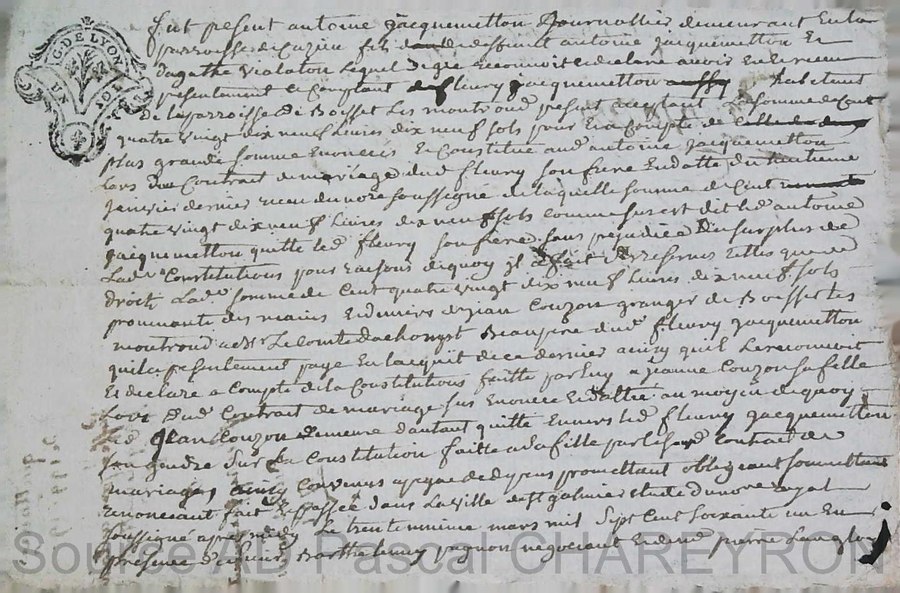 G. DE LYON
UN SOL
fut present antoine jacquemetton Journallier demeurant En la
parroisse de Cuzieu fils de deffunt antoine jacquemetton Et
Dagathe violaton Lequel degre reconnoit et declare avoir Eu Et receu
presentement Comptant de fleury jacquemetton habitant
de la parroisse de Boisset Les montrond present acceptant La somme de Cent
quatre vingt dix neuf Livres dix neuf sols pour Et a Compte de
plus grande somme Enoncée Et Constituée aud antoine jacquemetton
Lors du Contrat de mariage dud fleury son frere En datte du huitieme
janvier dernier receu du nore soussigné de laquelle somme de Cent
quatre vingt dix neuf Livres dix neuf sols comme sus est dit led antoine
jacquemetton quitte led fleury son frere sans prejudice du surplus de
Lad Constitutions pour raisons de quoy il fait reserves telles que de
droit Lad somme de Cent quatre vingt dix neuf Livres dix neuf sols
provenante des mains Et deniers de jean Couzon granger de Boisset Les
montrond a Mr Le Comte Beaupere dud fleury jacquemetton
qui l'a presentement payé En l'acquit de ce dernier ainsy quil Le reconnoit
Et declare a Compte de la Constitutions faitte par luy a jeanne Couzon sa fille
Lors dud Contrat de mariage sus Enoncé Et datté au moyen de quoy
led jean Couzon demeure dautant quitte Envers led fleury jacquemetton
son gendre sur la Constitution faitte a sa fille par le susd Contrat de
mariage, ainsy Convenus a peyne de depens promettant obligeant soumettant
renonceant fait Et passé dans La ville de St galmier Etude du nore royal
soussigné apres midy Le trente unieme mars mil Sept Cent soixante un En
presence de Barthelemy pagnon negociant Et de pierre Langlois
Source AD Pascal CHAREYRON